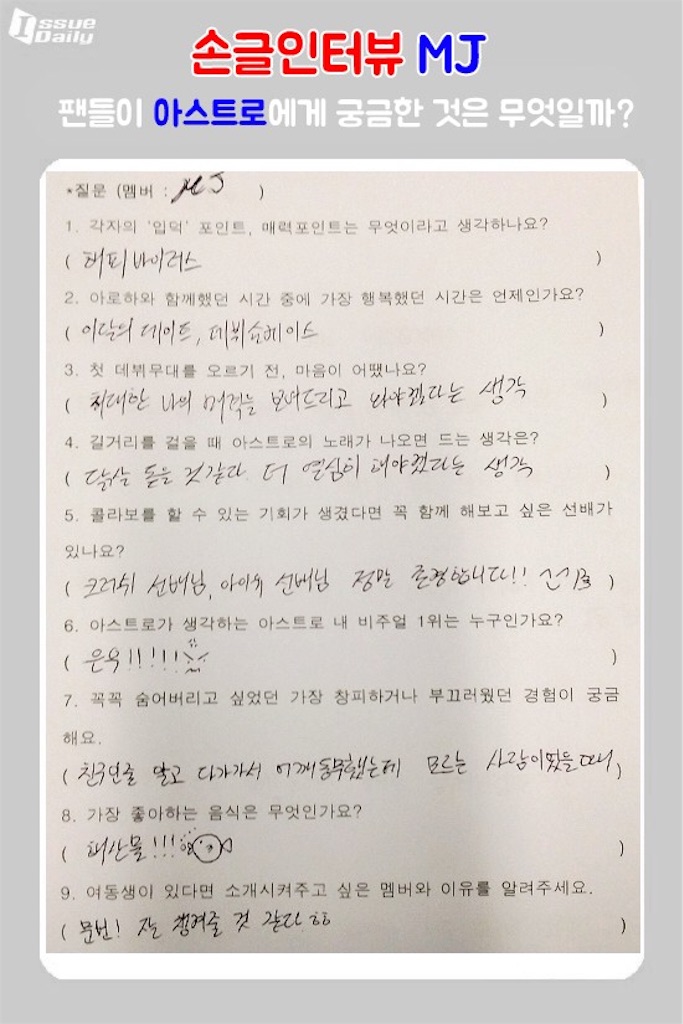 Issue
Daily
손글인터뷰 MJ
팬들이 아스트로에게 궁금한 것은 무엇일까?
*질문 (멤버 : MJ )
1. 각자의 '입덕' 포인트, 매력포인트는 무엇이라고 생각하나요?
( 해피바이러스 )
2. 아로하와 함께했던 시간 중에 가장 행복했던 시간은 언제인가요?
( 이달의 데이트, 데뷔쇼케이스 )
3. 첫 데뷔무대를 오르기 전, 마음이 어땠나요?
( 최대한 나의 매력을 보여드리고 와야겠다는 생각 )
4. 길거리를 걸을 때 아스트로의 노래가 나오면 드는 생각은?
( 닭살 돋을 것 같다. 더 열심히 해야겠다는 생각 )
5. 콜라보를 할 수 있는 기회가 생겼다면 꼭 함께 해보고 싶은 선배가
있나요?
( 크러쉬 선배님, 아이유 선배님 정말 존경합니다!! )
6. 아스트로가 생각하는 아스트로 내 비주얼 1위는 누구인가요?
( 은우!!!!! )
7. 꼭꼭 숨어버리고 싶었던 가장 창피하거나 부끄러웠던 경험이 궁금
해요.
( 친구인줄 알고 다가가서 어깨동무했는데 모르는 사람이였을때 )
8. 가장 좋아하는 음식은 무엇인가요?
( 해산물!!! )
9. 여동생이 있다면 소개시켜주고 싶은 멤버와 이유를 알려주세요.
( 문빈! 잘 챙겨줄 것 같다. ㅎㅎ )